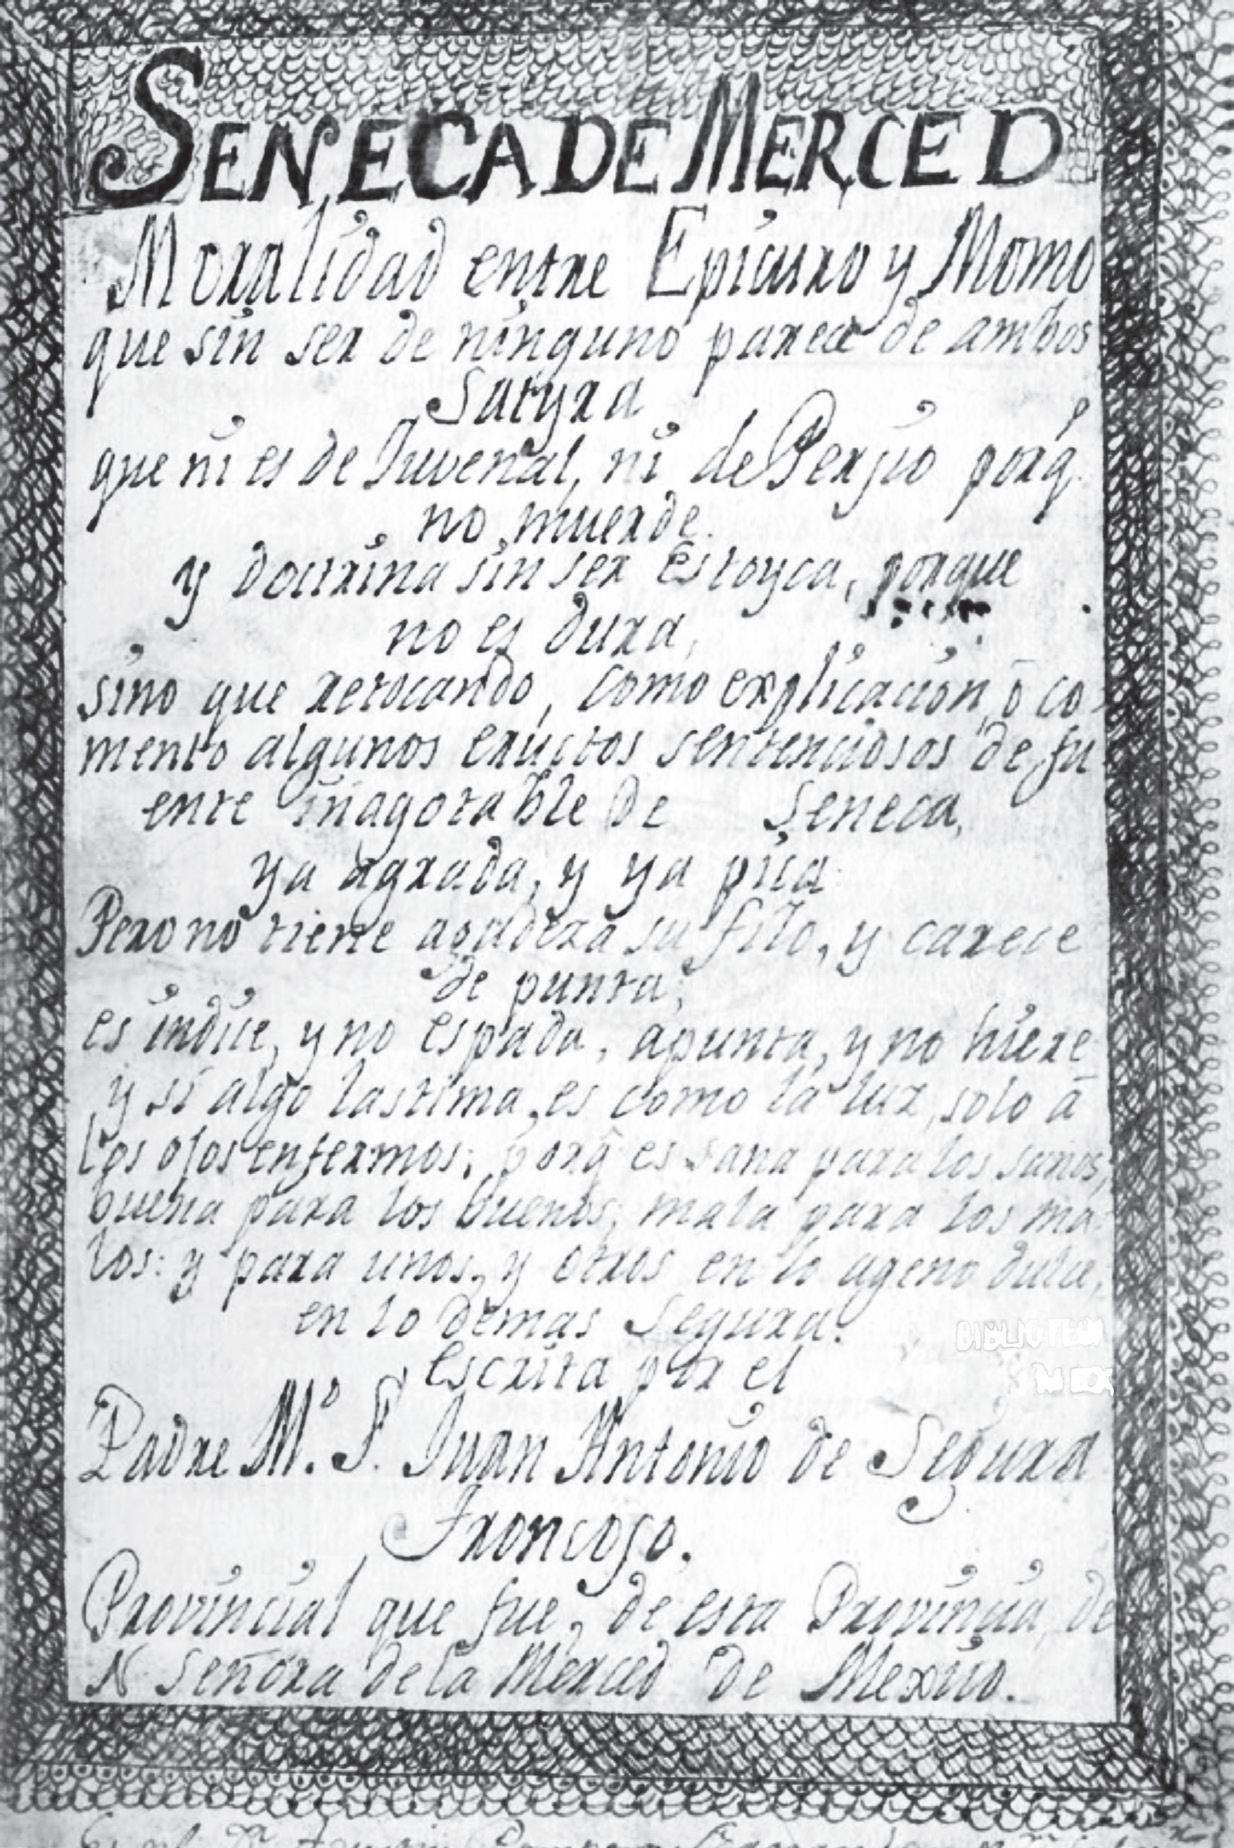 SENECA DE MERCED
Moralidad entre Epicuro y Momo
que sin ser de ninguno parece de ambos
Satyra
que ni es de Iuvenal, ni de Persio porq̃
no muerde.
y doctrina sin ser Estoyca, porque
no es dura,
sino que retocando, como explicacion, ò co-
mento algunos eructos sentenciosos de fu
ente inagotable de Seneca,
ya agrada, y ya pica.
Pero no tiene agudeza su filo, y carece
de punta;
es indice, y no espada, apunta, y no hiere
y si algo lastima, es como la luz, solo à
los ojos enfermos; porq̃ es sana para los sanos,
buena para los buenos; mala para los ma-
los: y para unos, y otros en lo ageno dulce,
en lo demas Segura.
escrita por el
Padre M.º F. Juan Antonio de Segura
Troncoso.
Provincial que fue, de esta Provincia, de
N Señora de la Merced de Mexico.
BIBLIOTECA